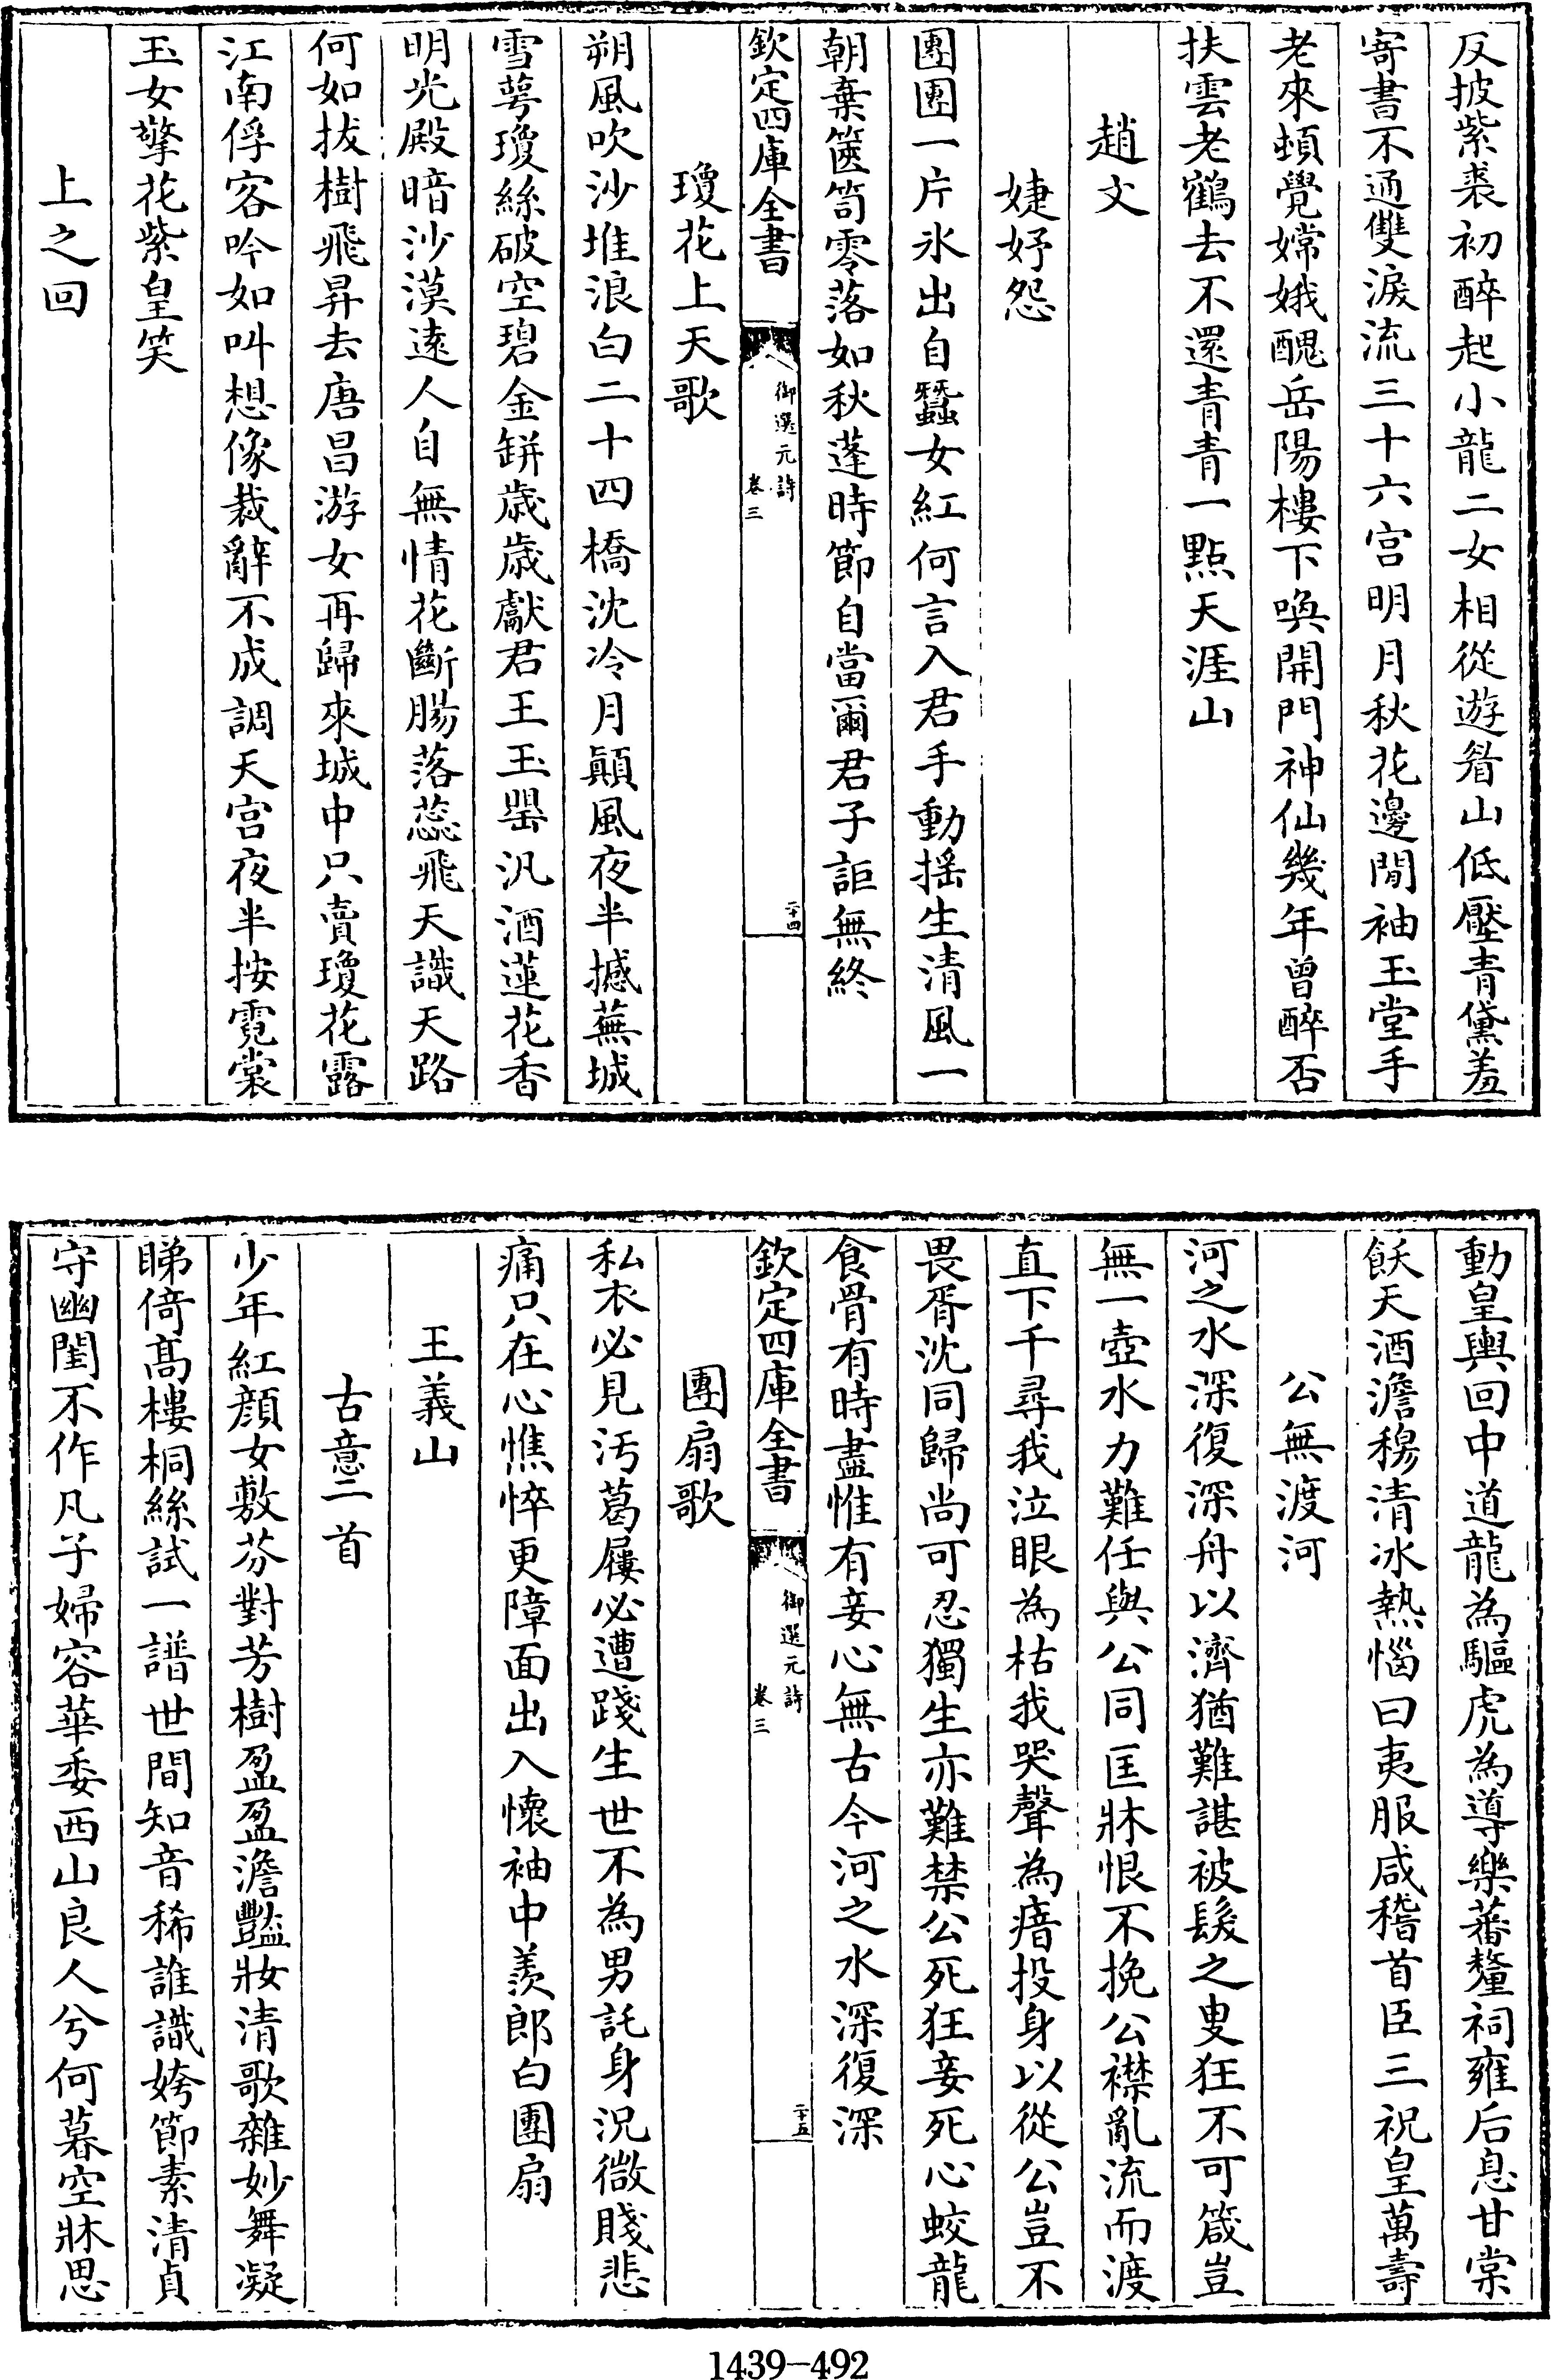 反披紫裘初醉起小龍二女相從遊眉山低壓青黛羞
寄書不通雙淚流三十六宫明月秋花邊閒袖玉堂手
老來頓覺嫦娥醜岳陽樓下喚開門神仙幾年曾醉否
扶雲老鶴去不還青青一點天涯山
趙文
婕妤怨
團團一片氷出自蠶女紅何言入君手動揺生清風一
朝棄篋笥零落如秋蓬時節自當爾君子詎無終
欽定四庫全書
御選元詩
卷三
二十四
瓊花上天歌
朔風吹沙堆浪白二十四橋沈冷月顛風夜半撼蕪城
雪萼瓊絲破空碧金缾歳歳獻君王玉斝汎酒蓮花香
明光殿暗沙漠逺人自無情花斷腸落蕊飛天識天路
何如拔樹飛昇去唐昌游女再歸來城中只賣瓊花露
江南俘客吟如叫想像裁辭不成調天宫夜半按霓裳
玉女擎花紫皇笑
上之回
動皇輿回中道龍為驅虎為導樂蕃釐祠雍后息甘棠
飫天酒澹穆清冰熱惱曰夷服咸稽首臣三祝皇萬壽
公無渡河
河之水深復深舟以濟猶難諶被髮之叟狂不可箴豈
無一壺水力難任與公同匡牀恨不挽公襟亂流而渡
直下千尋我泣眼為枯我哭聲為瘖投身以從公豈不
畏胥沈同歸尚可忍獨生亦難禁公死狂妾死心蛟龍
食骨有時盡惟有妾心無古今河之水深復深
欽定四庫全書
御選元詩
卷三
二十五
團扇歌
私衣必見汚葛屨必遭踐生世不為男託身況微賤悲
痛只在心憔悴更障面出入懷袖中羨郎白團扇
王義山
古意二首
少年紅顔女敷芬對芳樹盈盈澹豔妝清歌雜妙舞凝
睇倚髙樓桐絲試一譜世間知音稀誰識姱節素清貞
守幽閨不作凡子婦容華委西山良人兮何暮空牀思
1439-492